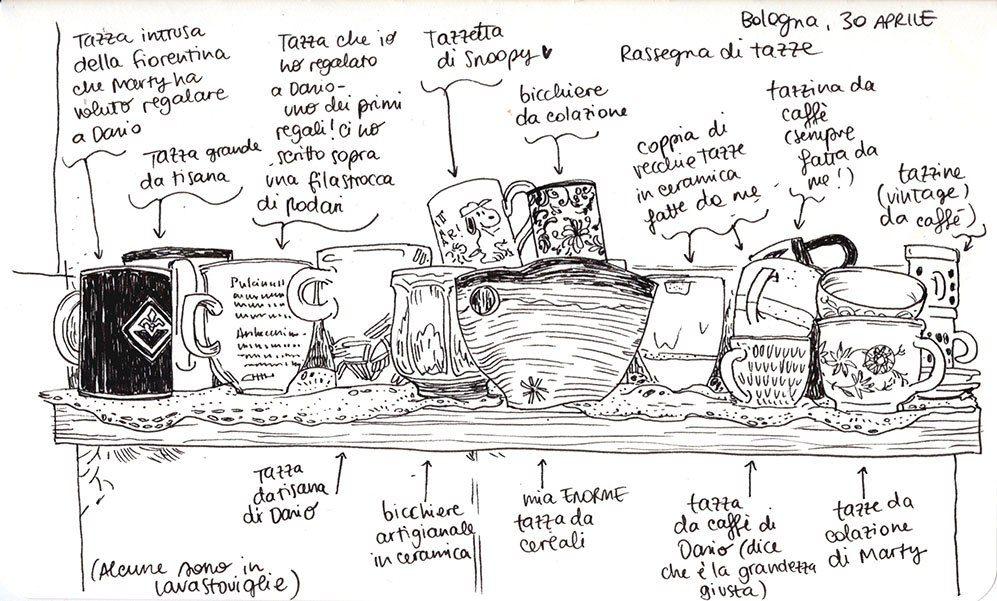 Bologna, 30 APRILE
Rassegna di tazze
Tazza intrusa
della fiorentina
che Marty ha
voluto regalare
a Dario
Tazza grande
da tisana
Tazza che io
ho regalato
a Dario -
uno dei primi
regali! Ci ho
scritto sopra
una filastrocca
di Rodari
Tazzetta
di Snoopy
bicchiere
da colazione
coppia di
vecchie tazze
in ceramica
fatte da me
tazzina da
caffè
(sempre
fatta da
me!)
tazzine
(vintage)
da caffè
Tazza
da tisana
di Dario
bicchiere
artigianale
in ceramica
mia ENORME
tazza da
cereali
tazza
da caffè di
Dario (dice
che è la grandezza
giusta)
tazze da
colazione
di Marty
(Alcune sono in
lavastoviglie)